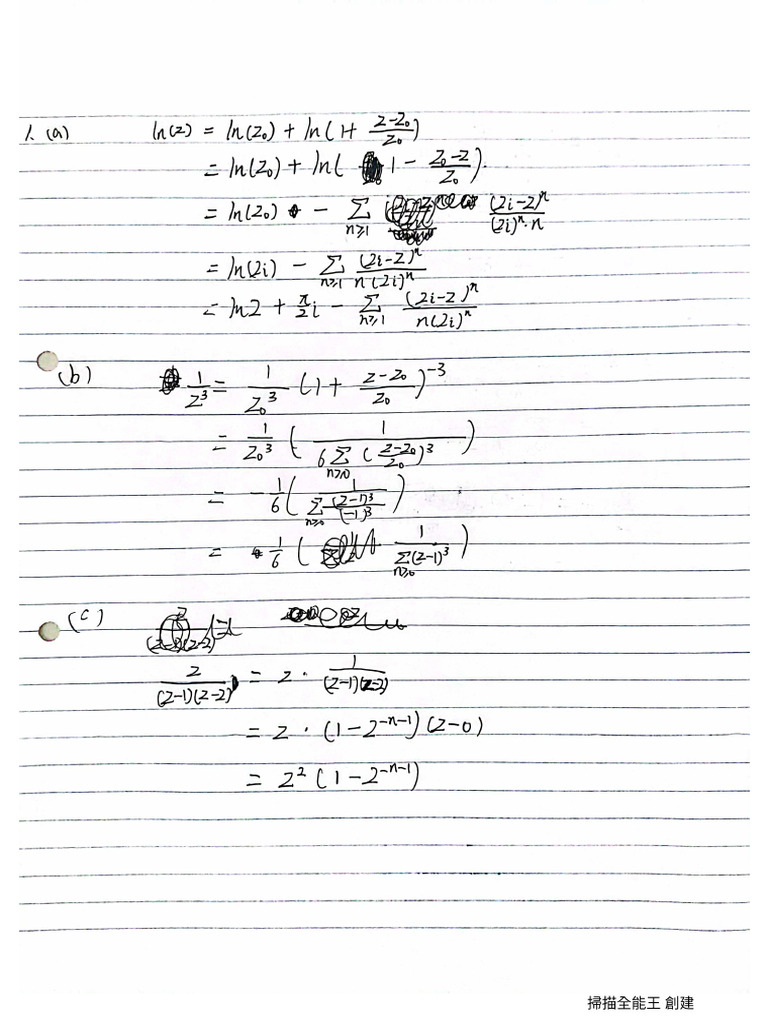 1. (a) ln(z) = ln(z₀) + ln(1+ (z-z₀)/z₀)
= ln(z₀) + ln( 1 - (z₀-z)/z₀).
= ln(z₀) - Σ_{n≥1} (2i-z)ⁿ/((2i)ⁿ·n)
= ln(2i) - Σ_{n≥1} (2i-z)ⁿ/(n(2i)ⁿ)
= ln2 + π/2 i - Σ_{n≥1} (2i-z)ⁿ/(n(2i)ⁿ)
(b) 1/z³ = 1/z₀³ (1+ (z-z₀)/z₀)⁻³
= 1/z₀³ ( 1/(6Σ_{n≥0} ((z-z₀)/z₀)³) )
= -1/6 ( 1/(Σ_{n≥0} (z-1)³/(-1)³) )
= 1/6 ( 1/(Σ_{n≥0} (z-1)³) )
(c)
z/((z-1)(z-2)) = z · 1/((z-1)(z-2))
= z · (1-2^{-n-1})(z-0)
= z² (1-2^{-n-1})
掃描全能王 創建